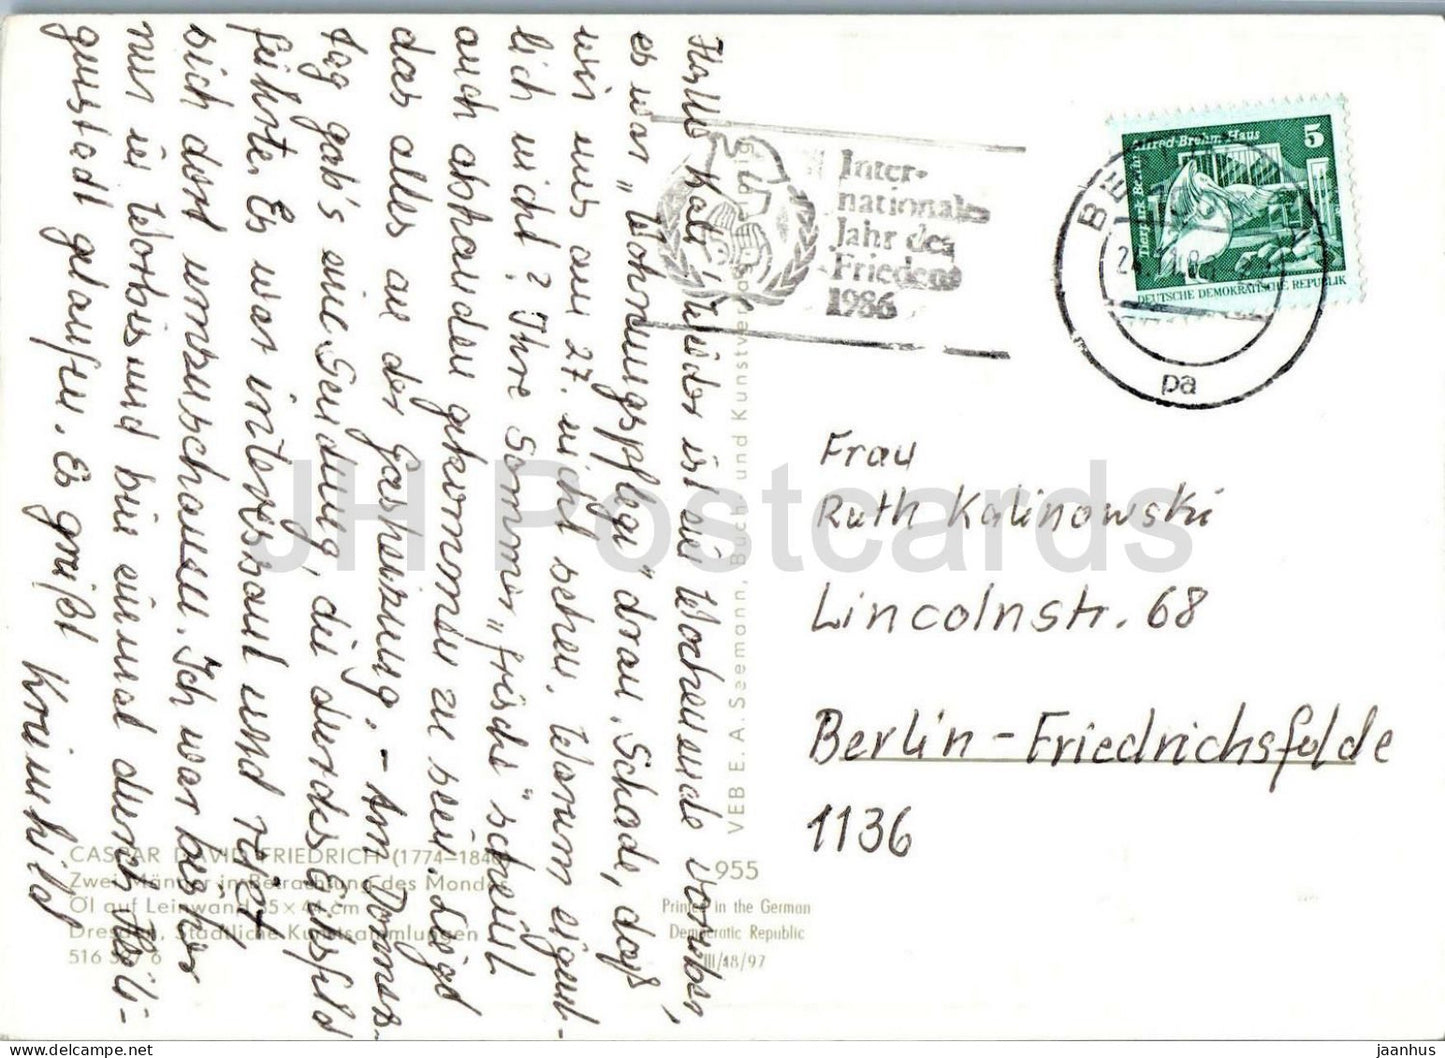 Hallo Kali! Wieder ist ein Wochenende vorüber,
es war „Wohnungspflege" dran. Schade, daß
wir uns am 27. nicht sehen. Warum eigent-
lich nicht? Ihre Sommer„frische" scheint
auch abhanden gekommen zu sein. Liegt
das alles an der Gasheizung. – Am Donners-
tag gab's eine Sendung, die durchs Eichsfeld
führte. Es war interessant und reizt
sich dort umzuschauen. Ich war bisher
nur in Worbis und bin einmal durch Heili-
genstadt gelaufen. Es grüßt
Krimhild
CASPAR DAVID FRIEDRICH (1774–1840)
Zwei Männer in Betrachtung des Mondes
Öl auf Leinwand 35 × 44 cm
Dresden, Staatliche Kunstsammlungen
516 6
955
Printed in the German
Democratic Republic
III/18/97
VEB E. A. Seemann, Buch- und Kunstverlag Leipzig
Inter-
nationales
Jahr des
Friedens
1986
BE
pa
Tierpark Berlin Alfred-Brehm-Haus
5
DEUTSCHE DEMOKRATISCHE REPUBLIK
Frau
Ruth Kalinowski
Lincolnstr. 68
Berlin-Friedrichsfelde
1136
JH Postcards
jaanhus
www.delcampe.net